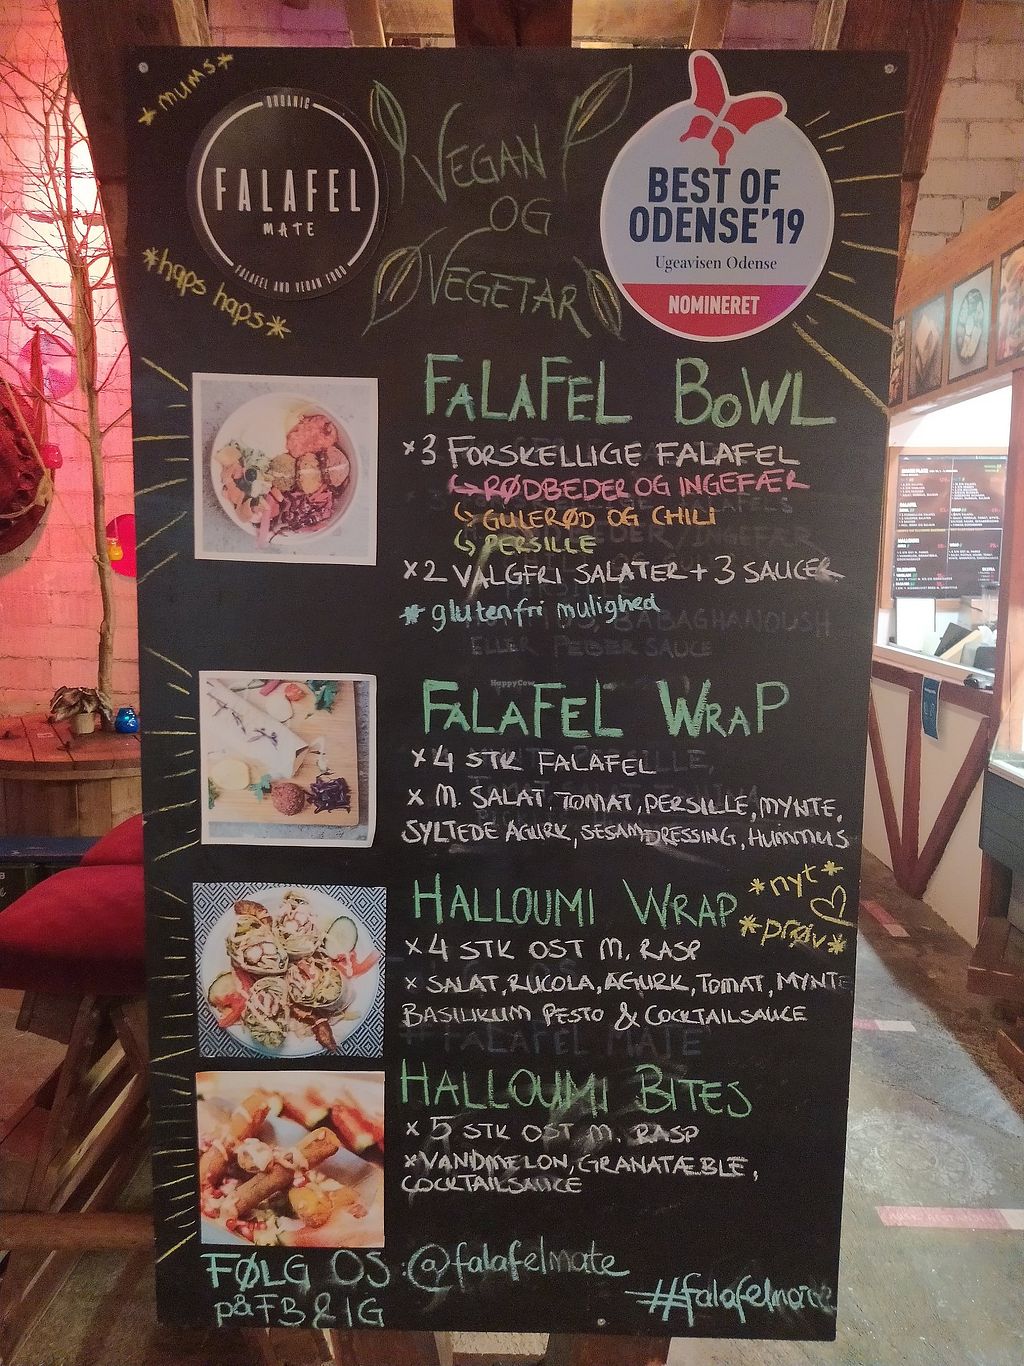 *mums*
ORGANIC
FALAFEL
MATE
FALAFEL AND VEGAN FOOD
*haps haps*
VEGAN
OG
VEGETAR
BEST OF
ODENSE'19
Ugeavisen Odense
NOMINERET
FALAFEL BOWL
x 3 FORSKELLIGE FALAFEL
↳ RØDBEDER OG INGEFÆR
↳ GULERØD OG CHILI
↳ PERSILLE
x 2 VALGFRI SALATER + 3 SAUCER
* glutenfri mulighed
BABAGHANOUSH
ELLER PEBER SAUCE
HappyCow
FALAFEL WRAP
x 4 STK FALAFEL
x M. SALAT, TOMAT, PERSILLE, MYNTE,
SYLTEDE AGURK, SESAMDRESSING, HUMMUS
HALLOUMI WRAP
*nyt*
*prøv*
x 4 STK OST M. RASP
x SALAT, RUCOLA, AGURK, TOMAT, MYNTE
BASILIKUM PESTO & COCKTAILSAUCE
#FALAFEL MATE
HALLOUMI BITES
x 5 STK OST M. RASP
x VANDMELON, GRANATÆBLE,
COCKTAILSAUCE
FØLG OS : @falafelmate
på FB & IG
#falafelmate